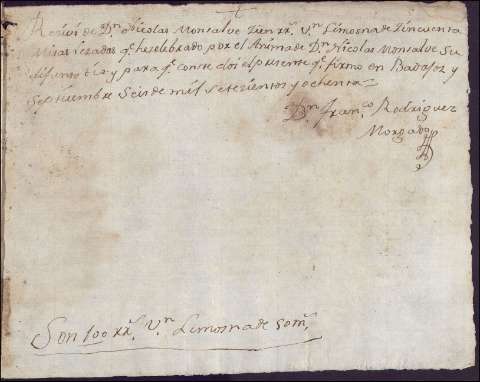 +
Reciví de Dn Nicolas Monsalve Zien rr.s Vn Limosna de Zincuenta
Misas rezadas q.e he zelebrado por el Anima de Dn Nicolas Monsalve Su
difunto tio y para q.e conste doi el presente q.e firmo en Badajoz y
Septiembre Seis de mil setezientos y ochenta
Dn Fran.co Rodriguez
Morgado
Son 100 rr.s Vn Limosna de 50 m.s